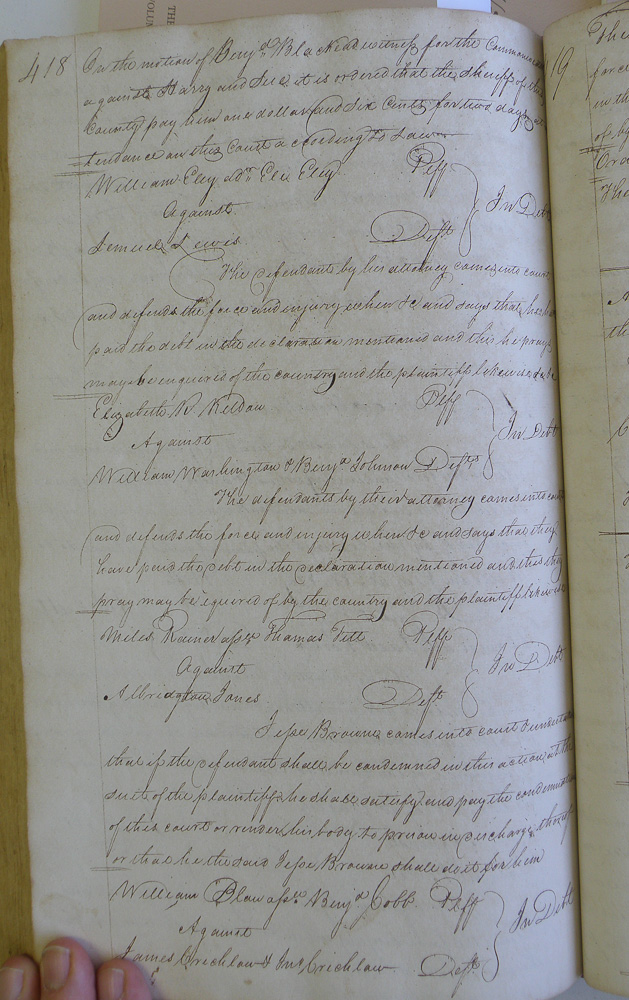 418
On the motion of Benjª Blackead witness for the Commonwea
against Harry and Sue it is ordered that the Sheriff of this
County pay him one dollar and Six Cents for two days at
tendance on this Court according to Law
William Eley adr. Eli Eley Pltff
Against In Debt
Lemuel Lewis Deft
The defendants by his attorney comes into court
and defends the force and injury when &c and says that he ha
paid the debt in the declaration mentioned and this he prays
may be enquired of the country and the plaintiff likewise
Elizabeth R Pltff
Against In Debt
William Washington & Benjª Johnson Defts
The defendants by their attorney comes into cou
and defends the force and injury when &c and says that they
have paid the debt in the declaration mentioned and this they
pray may be equired of by the country and the plaintiff likewise
Miles Rainer assee Thomas Pltff
Against In Debt
Albridgton Jones Deft
Jesse Browne comes into court & underta
that if the defendant shall be condemned in this action at the
suit of the plaintiff he shall satisfy and pay the condemnation
of this court or render his body to prison in discharge thereof
or that he the said Jesse Browne shall do it for him
William Blow assee Benja Cobb Pltff
Against In Debt
James Crichlow & Jno Crichlow Defts
419